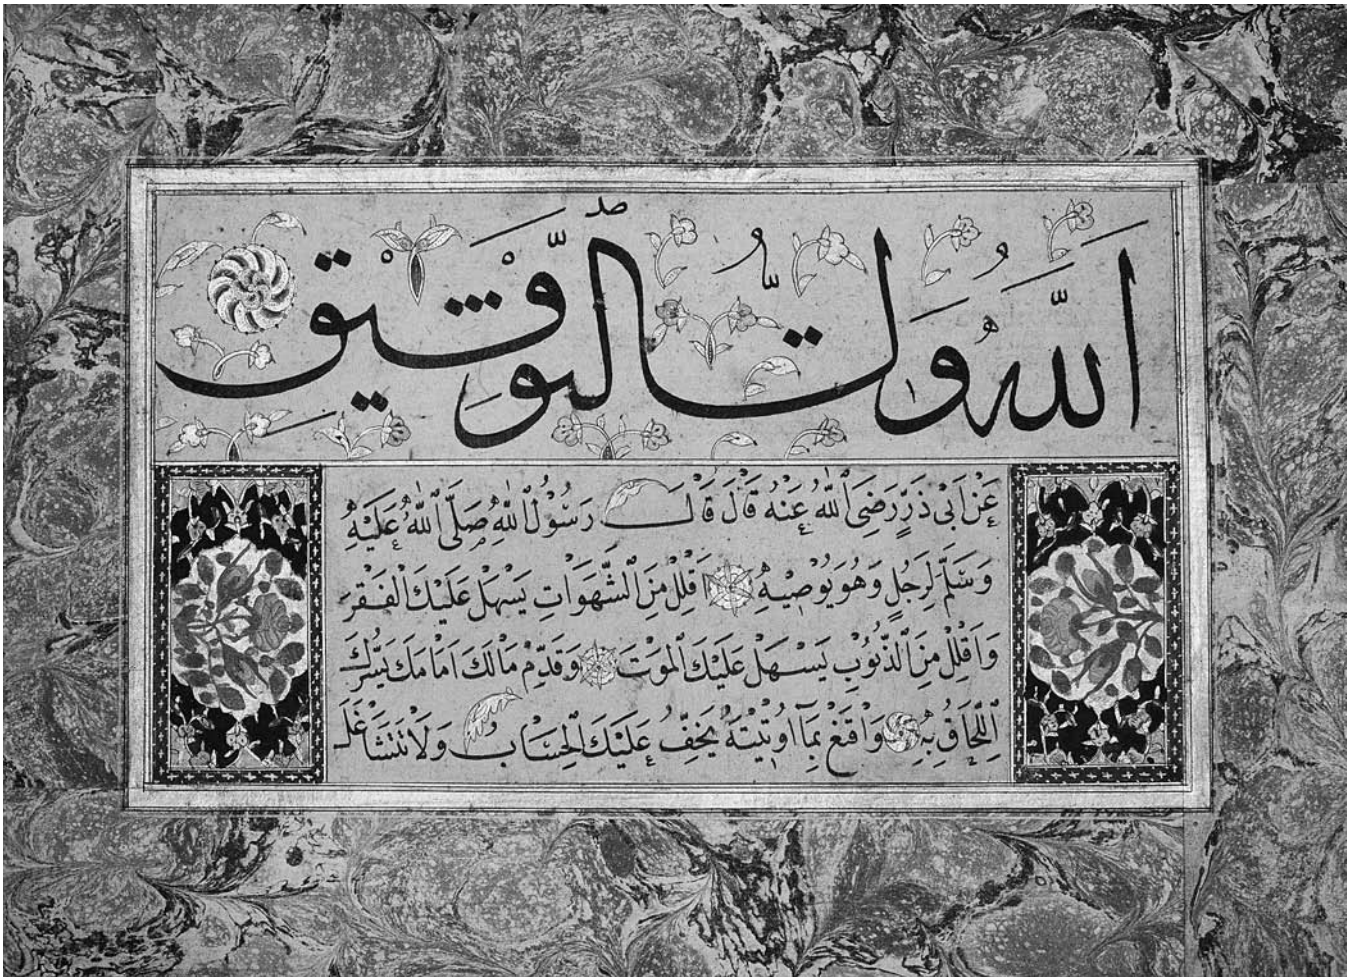 اَللّٰهُ وَلِيُّ التَّوْفِيْقِ
عَنْ اَبِى ذَرٍّ رَضِىَ اللّٰهُ عَنْهُ قَالَ قَالَ رَسُوْلُ اللّٰهِ صَلَّى اللّٰهُ عَلَيْهِ
وَسَلَّمَ لِرَجُلٍ وَهُوَ يُوْصِيْهِ اَقْلِلْ مِنَ الشَّهَوَاتِ يَسْهَلْ عَلَيْكَ الْفَقْرَ
وَاَقْلِلْ مِنَ الذُّنُوْبِ يَسْهَلْ عَلَيْكَ الْمَوْتَ وَقَدِّمْ مَالَكَ اَمَامَكَ يَسُرُّكَ
اللِّحَاقُ بِهِ وَاقْنَعْ بِمَا اُوْتِيْتَهُ يَخِفُّ عَلَيْكَ الْحِسَابُ وَلَا تَتَشَاغَلْ